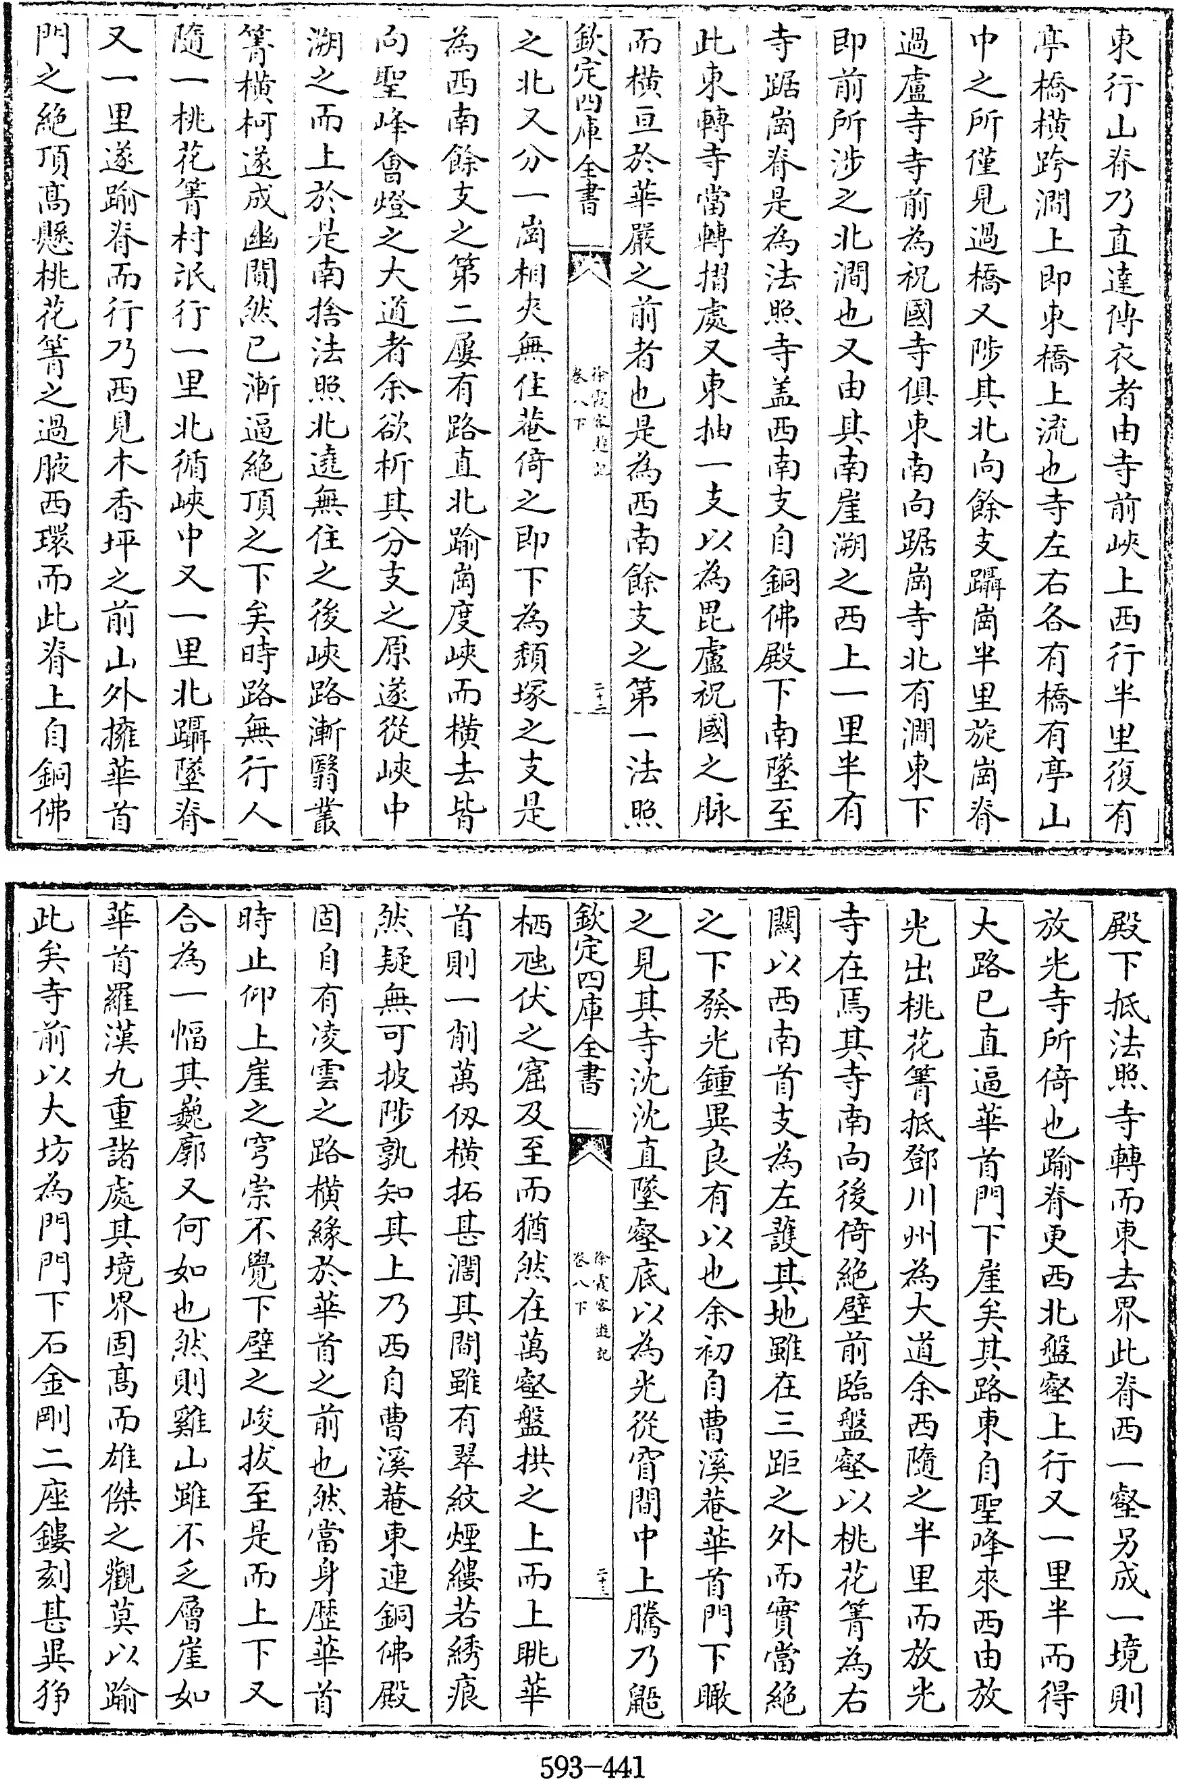 東行山脊乃直達傳衣者由寺前峽上西行半里復有
亭橋橫跨澗上即東橋上流也寺左右各有橋有亭山
中之所僅見過橋又陟其北向餘支躡崗半里旋崗脊
過盧寺寺前為祝國寺俱東南向踞崗寺北有澗東下
即前所涉之北澗也又由其南崖溯之西上一里半有
寺踞崗脊是為法照寺盖西南支自銅佛殿下南墜至
此東轉寺當轉摺處又東抽一支以為毘盧祝國之脉
而橫亘於華嚴之前者也是為西南餘支之第一法照
欽定四庫全書
徐霞客遊記
卷八下
二十二
之北又分一崗相夾無住菴倚之即下為頹塚之支是
為西南餘支之第二屢有路直北踰崗度峽而橫去皆
向聖峰會燈之大道者余欲析其分支之原遂從峽中
溯之而上於是南捨法照北遶無住之後峽路漸翳叢
箐橫柯遂成幽閴然已漸逼絶頂之下矣時路無行人
隨一桃花箐村氓行一里北循峽中又一里北躡墜脊
又一里遂踰脊而行乃西見木香坪之前山外擁華首
門之絶頂高懸桃花箐之過腋西環而此脊上自銅佛
殿下抵法照寺轉而東去界此脊西一壑另成一境則
放光寺所倚也踰脊更西北盤壑上行又一里半而得
大路已直逼華首門下崖矣其路東自聖峰來西由放
光出桃花箐抵鄧川州為大道余西隨之半里而放光
寺在焉其寺南向後倚絶壁前臨盤壑以桃花箐為右
關以西南首支為左護其地雖在三距之外而實當絶
之下發光鍾異良有以也余初自曹溪菴華首門下瞰
之見其寺沈沈直墜壑底以為光從窅間中上騰乃鼯
栖虺伏之窟及至而猶然在萬壑盤拱之上而上眺華
首則一削萬仭橫拓甚濶其間雖有翠紋煙縷若綉痕
然疑無可披陟孰知其上乃西自曹溪菴東連銅佛殿
固自有凌雲之路橫緣於華首之前也然當身歴華首
時止仰上崖之穹崇不覺下壁之峻拔至是而上下又
合為一幅其巍廓又何如也然則雞山雖不乏層崖如
華首羅漢九重諸處其境界固高而雄傑之觀莫以踰
此矣寺前以大坊為門門下石金剛二座鏤刻甚異猙
欽定四庫全書
徐霞客遊記
卷八下
二十三
593-441